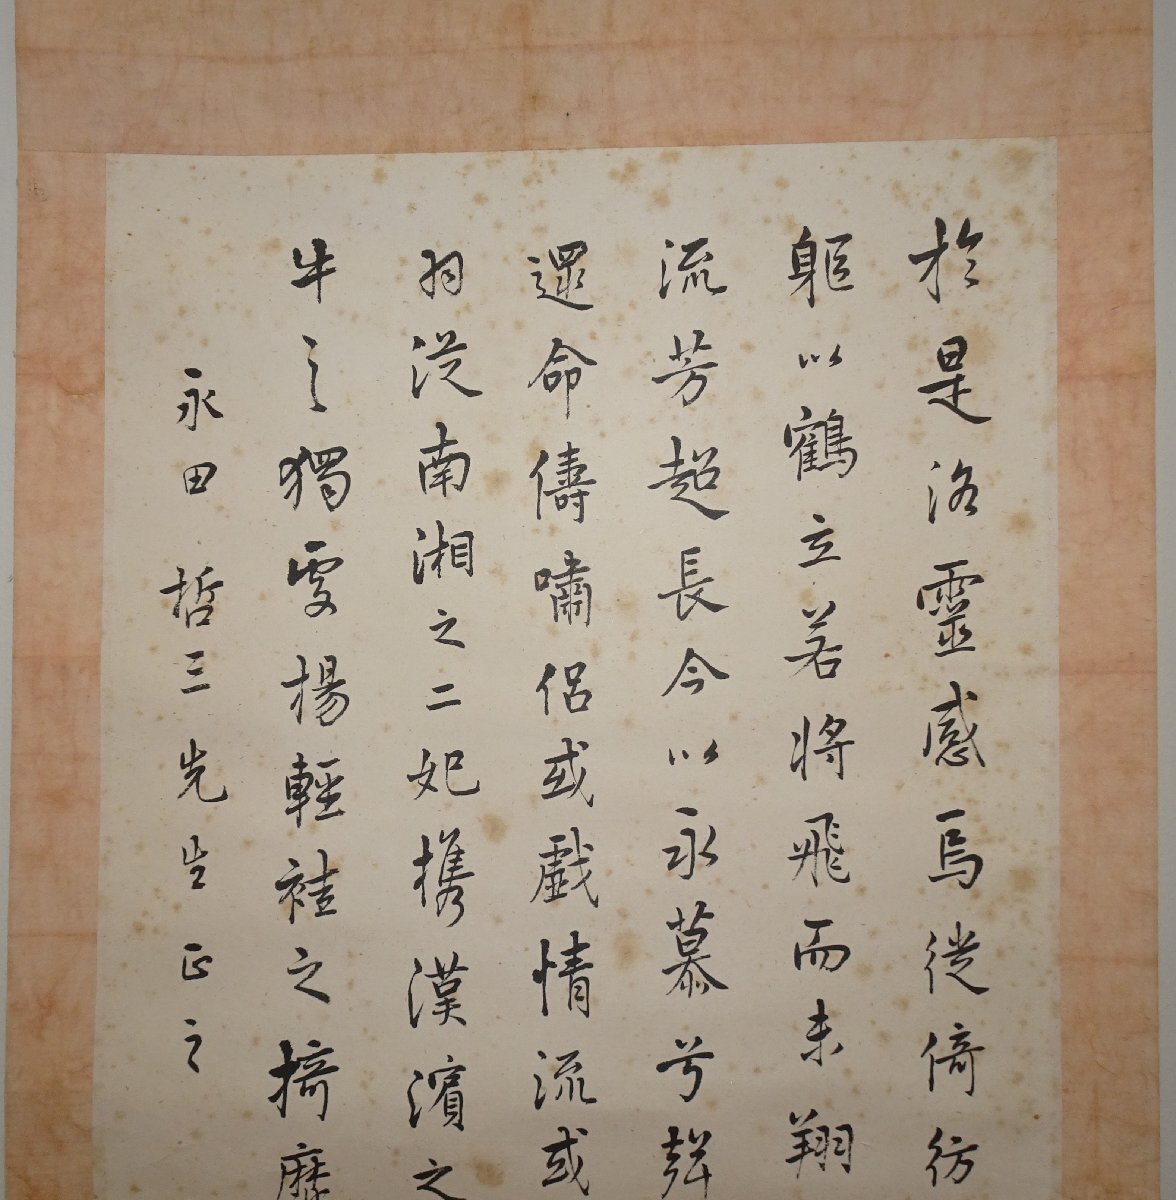 於是洛靈感焉徙倚彷
軀以鶴立若將飛而未翔
流芳超長今以永慕兮聲
遝命儔嘯侶或戲情流或
羽從南湘之二妃携漢濱之
牛之獨處揚輕袿之掎靡
永田哲三先生正之